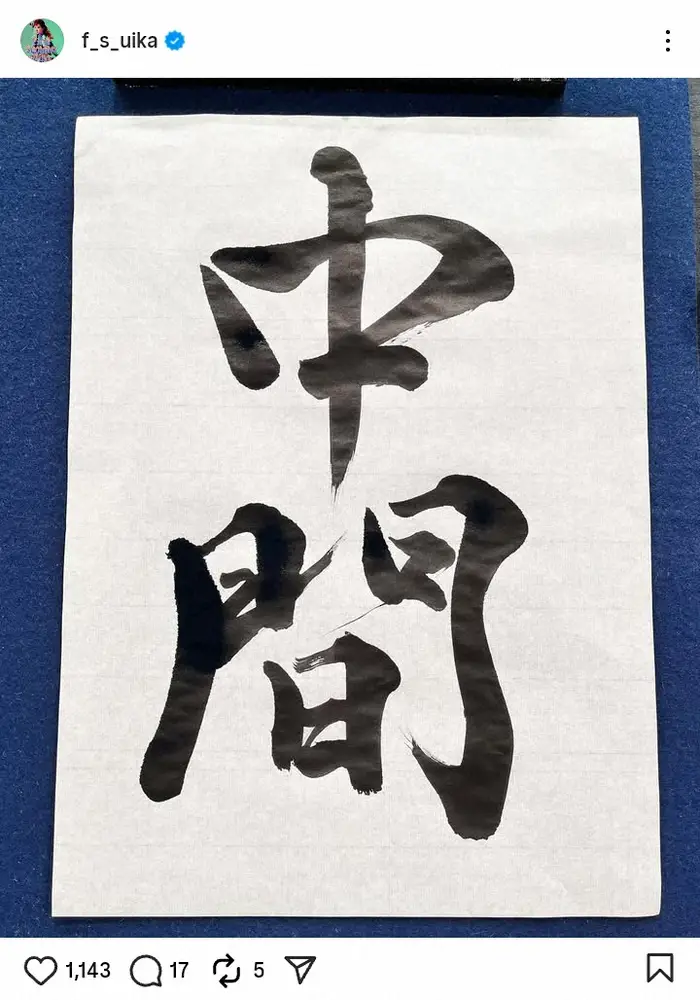 f_s_uika
中
間
1,143 17 5